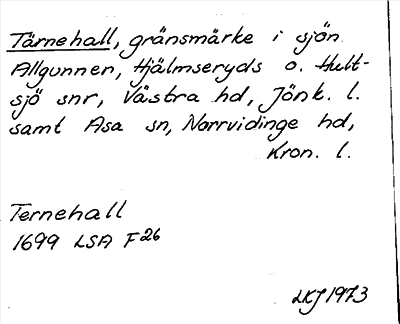 Tärnehall, gränsmärke i sjön
Allgunnen, Hjälmseryds o. Hult-
sjö snr, Västra hd, Jönk. l.
samt Asa sn, Norrvidinge hd,
Kron. l.
Ternehall
1699 LSA F26
LKJ 1973